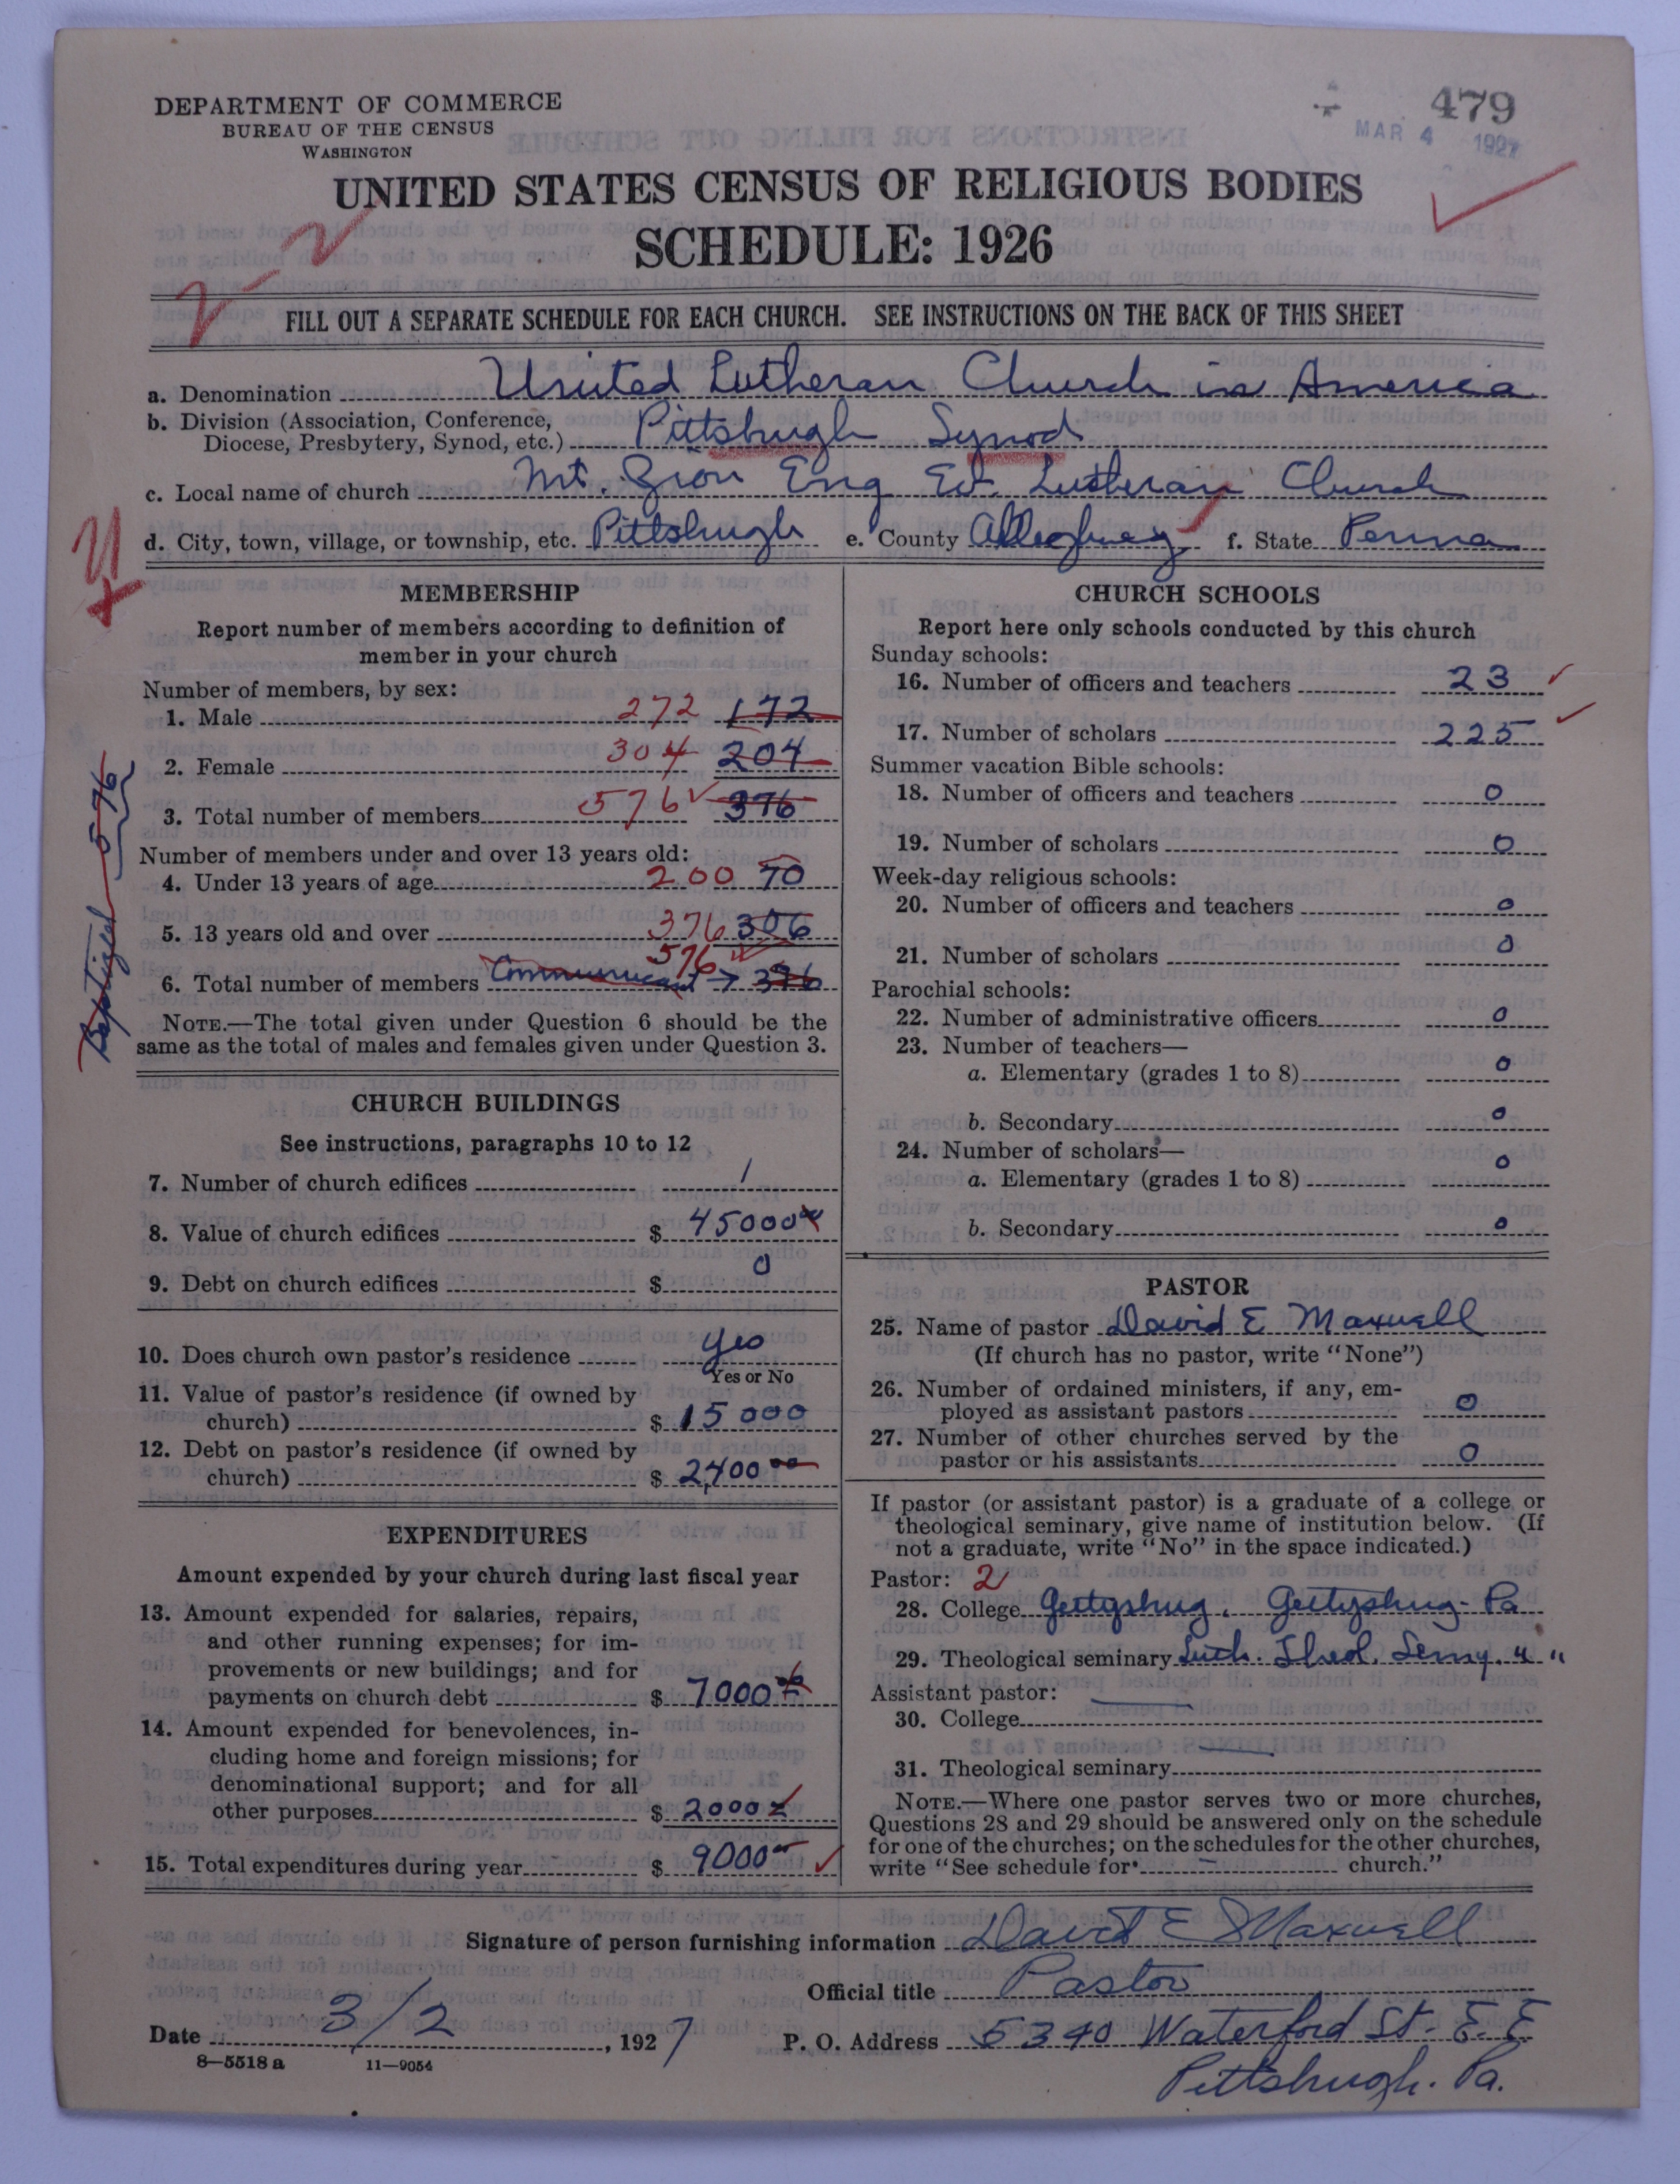 DEPARTMENT OF COMMERCE
BUREAU OF THE CENSUS
WASHINGTON
479
MAR 4 1927
UNITED STATES CENSUS OF RELIGIOUS BODIES
SCHEDULE: 1926
FILL OUT A SEPARATE SCHEDULE FOR EACH CHURCH. SEE INSTRUCTIONS ON THE BACK OF THIS SHEET
a. Denomination United Lutheran Church in America
b. Division (Association, Conference,
Diocese, Presbytery, Synod, etc.) Pittsburgh Synod
c. Local name of church Mt. Zion Eng Ev. Lutheran Church
d. City, town, village, or township, etc. Pittsburgh e. County Allegheney f. State Penna
MEMBERSHIP
Report number of members according to definition of
member in your church
Number of members, by sex:
1. Male 272 172
2. Female 304 204
3. Total number of members 576 376
Number of members under and over 13 years old:
4. Under 13 years of age 200 70
5. 13 years old and over 376 306
576
6. Total number of members Communicant → 376
Baptized 576
NOTE.—The total given under Question 6 should be the
same as the total of males and females given under Question 3.
CHURCH BUILDINGS
See instructions, paragraphs 10 to 12
7. Number of church edifices 1
8. Value of church edifices $ 45000
9. Debt on church edifices $ 0
10. Does church own pastor's residence yes
Yes or No
11. Value of pastor's residence (if owned by
church) $ 15000
12. Debt on pastor's residence (if owned by
church) $ 2,400 00
EXPENDITURES
Amount expended by your church during last fiscal year
13. Amount expended for salaries, repairs,
and other running expenses; for im-
provements or new buildings; and for
payments on church debt $ 7000
14. Amount expended for benevolences, in-
cluding home and foreign missions; for
denominational support; and for all
other purposes $ 2000
15. Total expenditures during year $ 9000
CHURCH SCHOOLS
Report here only schools conducted by this church
Sunday schools:
16. Number of officers and teachers 23
17. Number of scholars 225
Summer vacation Bible schools:
18. Number of officers and teachers 0
19. Number of scholars 0
Week-day religious schools:
20. Number of officers and teachers 0
21. Number of scholars 0
Parochial schools:
22. Number of administrative officers 0
23. Number of teachers—
a. Elementary (grades 1 to 8) 0
b. Secondary 0
24. Number of scholars—
a. Elementary (grades 1 to 8) 0
b. Secondary 0
PASTOR
25. Name of pastor David E Maxwell
(If church has no pastor, write "None")
26. Number of ordained ministers, if any, em-
ployed as assistant pastors 0
27. Number of other churches served by the
pastor or his assistants 0
If pastor (or assistant pastor) is a graduate of a college or
theological seminary, give name of institution below. (If
not a graduate, write "No" in the space indicated.)
Pastor: 2
28. College Gettysburg. Gettysburg- Pa
29. Theological seminary Luth. Theol. Semy. " "
Assistant pastor:
30. College
31. Theological seminary
NOTE.—Where one pastor serves two or more churches,
Questions 28 and 29 should be answered only on the schedule
for one of the churches; on the schedules for the other churches,
write "See schedule for church."
Signature of person furnishing information David E Maxwell
Official title Pastor
Date 3/2, 1927 P. O. Address 5340 Waterford St- E. E
Pittsburgh. Pa.
8—5518 a 11—9054